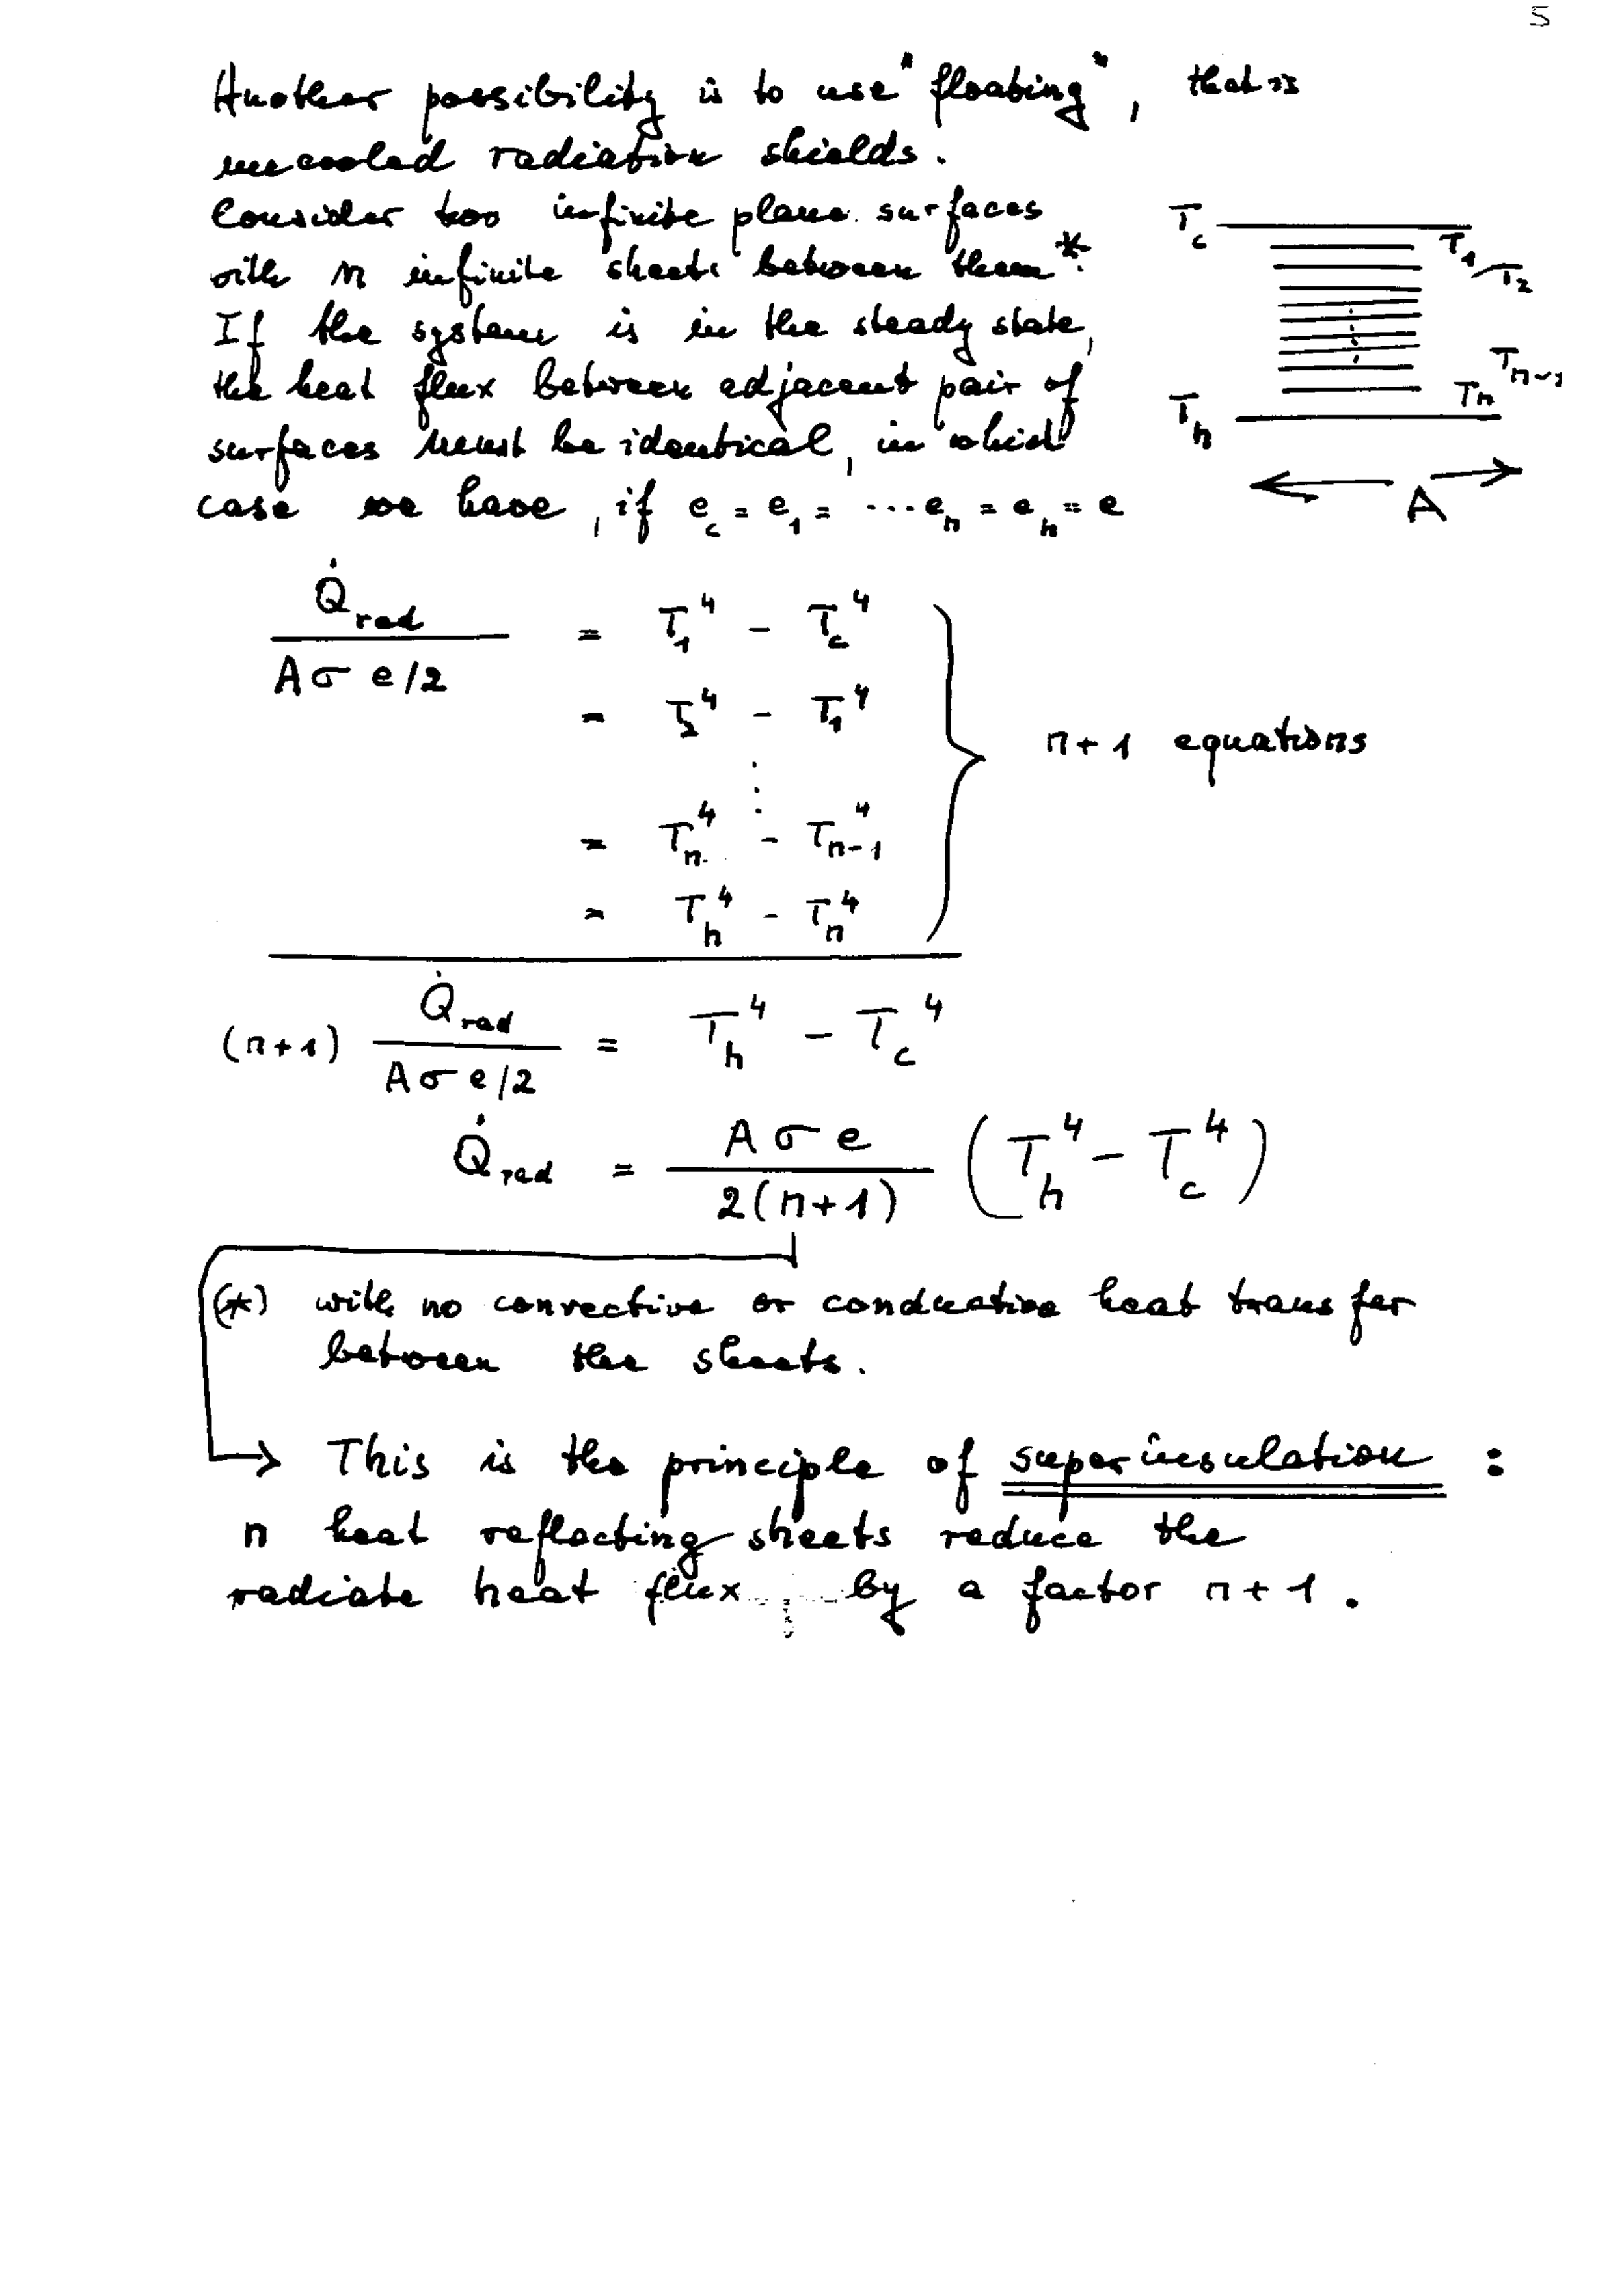 5
Another possibility is to use "floating", that is
uncooled radiation shields.
Consider two infinite plane surfaces
with n infinite sheets between them*.
If the system is in the steady state,
the heat flux between adjacent pair of
surfaces must be identical, in which
case we have, if e_c = e_1 = ... e_n = e_h = e
T_c
T_1
T_2
T_{n-1}
T_n
T_h
A
Q̇_rad / (A σ e/2) = T_1^4 - T_c^4
= T_2^4 - T_1^4
⋮
= T_n^4 - T_{n-1}^4
= T_h^4 - T_n^4
n+1 equations
(n+1) Q̇_rad / (A σ e/2) = T_h^4 - T_c^4
Q̇_rad = A σ e / 2(n+1) (T_h^4 - T_c^4)
(*) with no convective or conductive heat transfer
between the sheets.
→ This is the principle of superinsulation :
n heat reflecting sheets reduce the
radiate heat flux by a factor n+1.